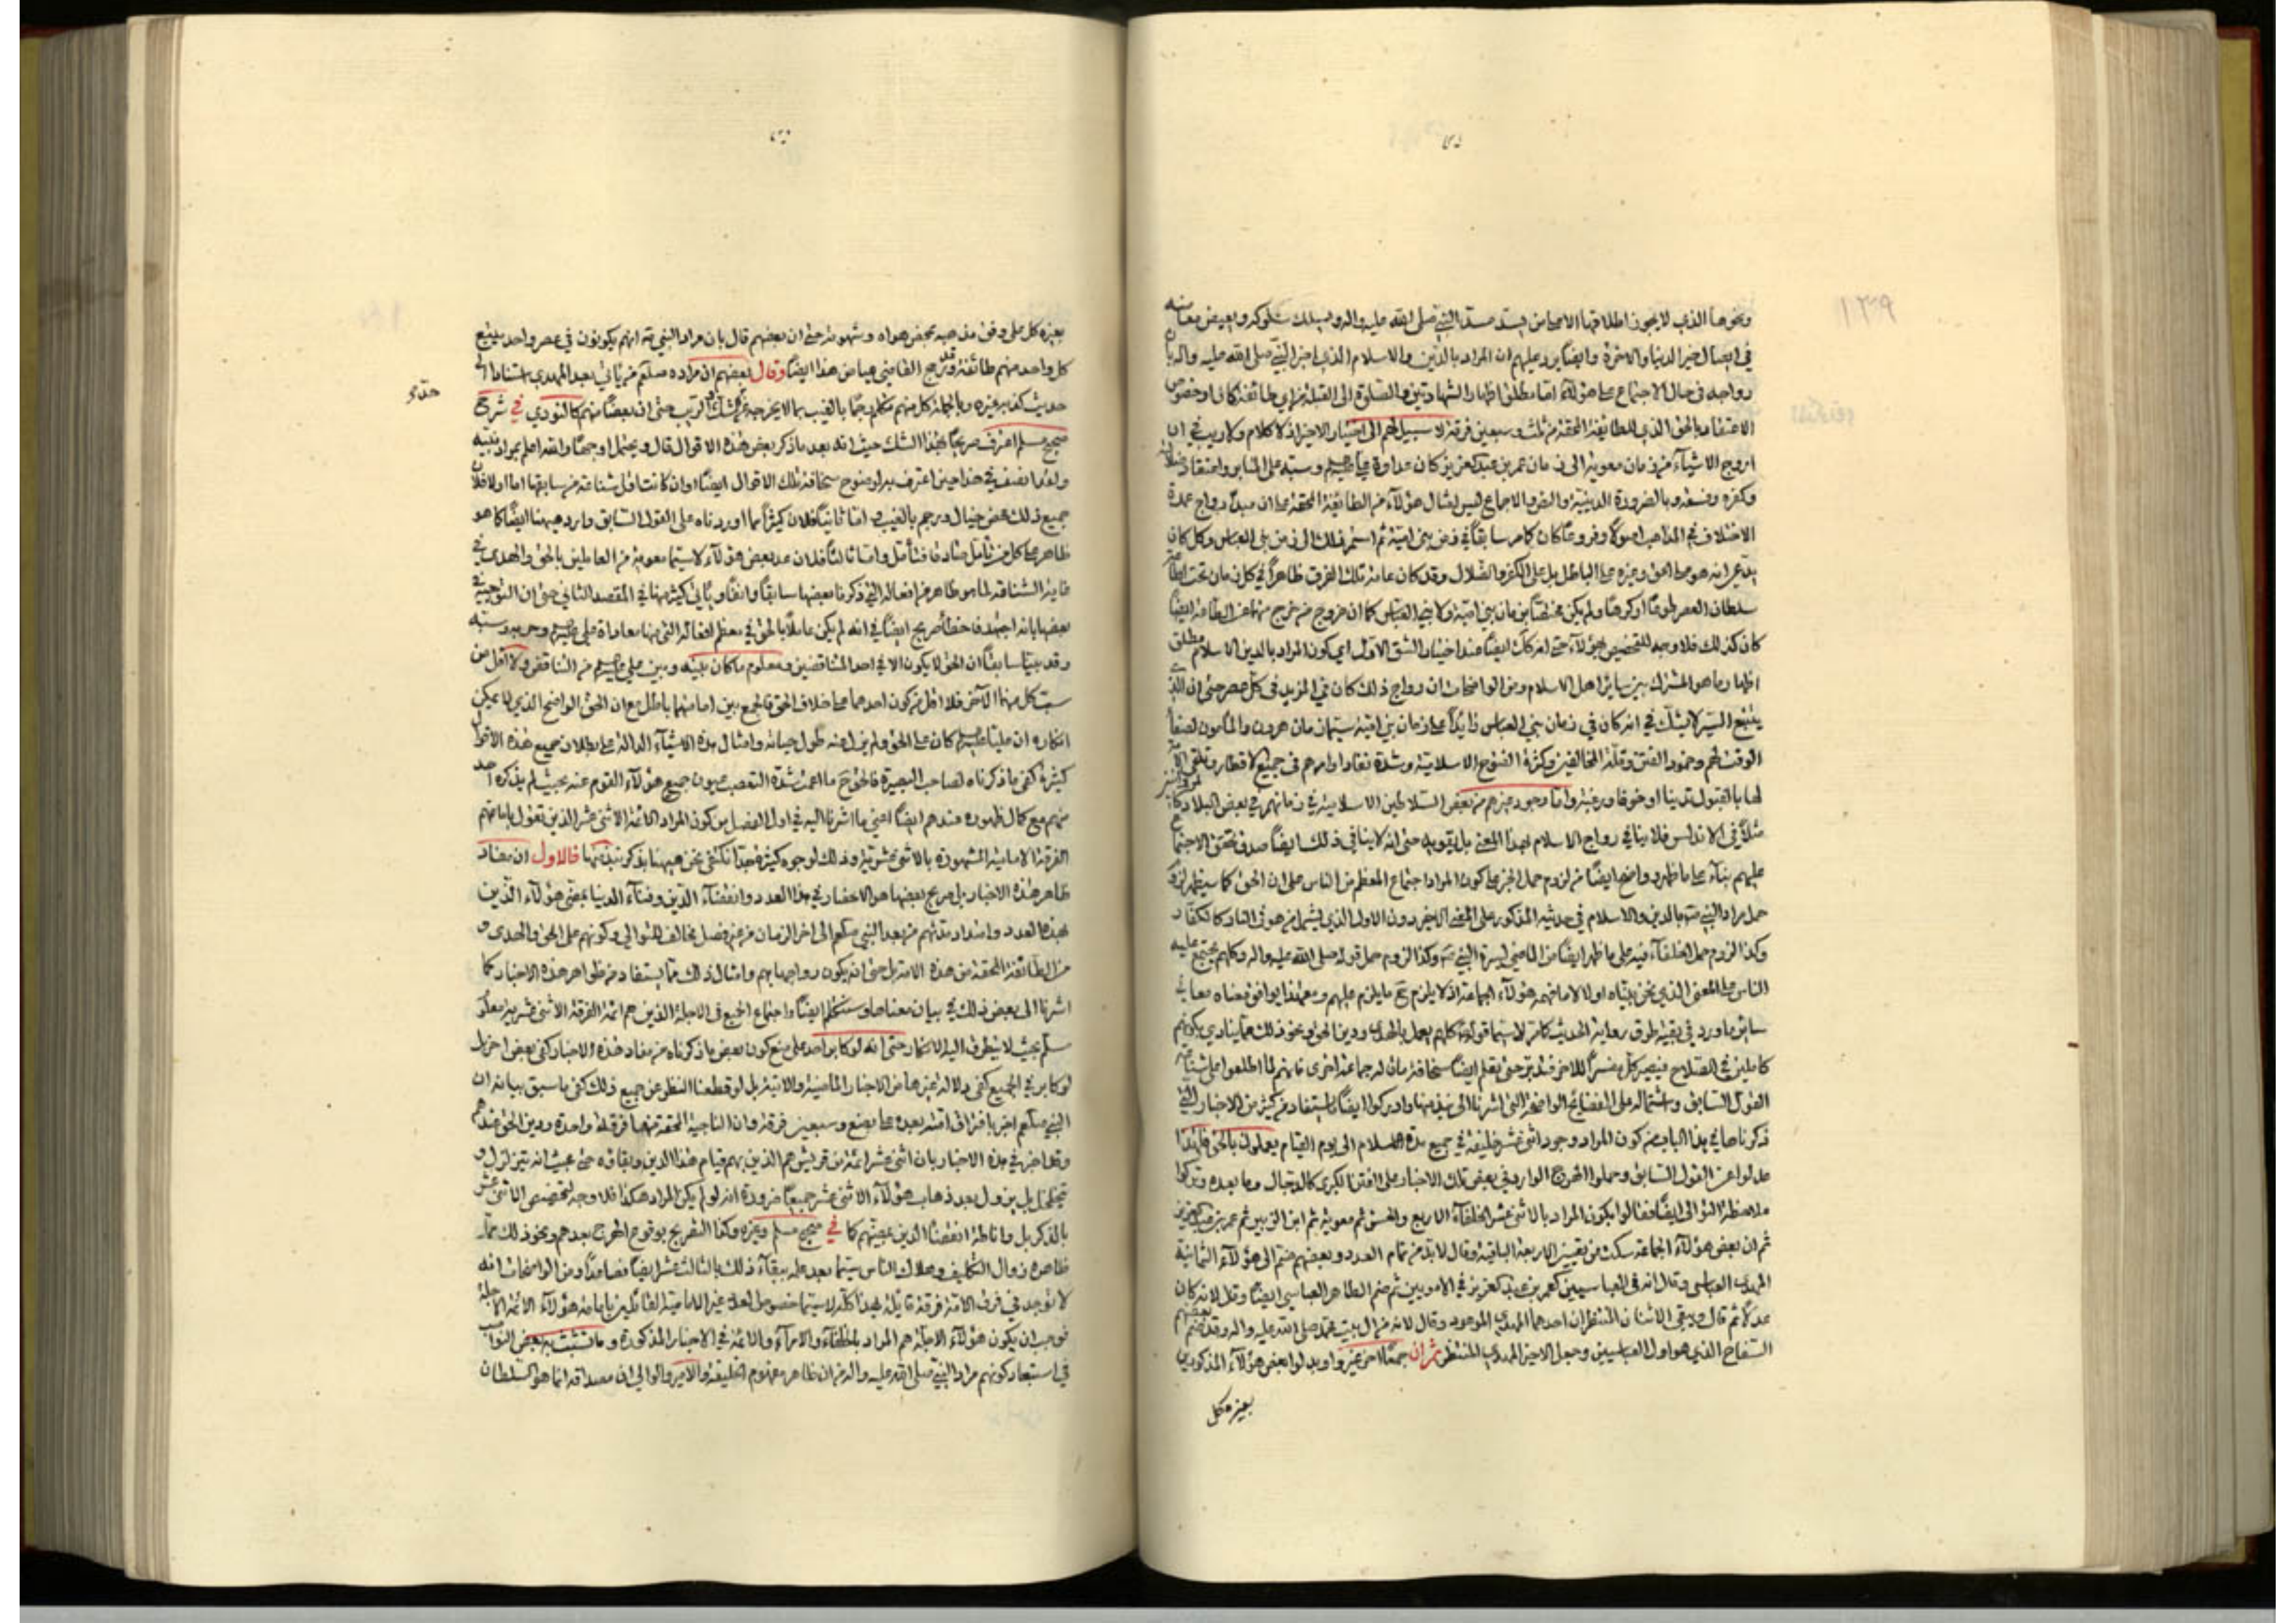 ونحوها الذي لا يجوز اطلاقها الا على من يستد مسد النبي صلى الله عليه واله ويسلك سلوكه
في ايصال خير الدنيا والاخرة وايضا يرد عليهم ان المراد بالدين والاسلام الذي اخبر النبي صلى الله عليه واله بان
رواجه في حال الاجتماع على هؤلاء اما مطلق اظهار الشهادتين والصلوة الى القبلة من اي طائفة كان او خصوص
الاعتقاد بالحق الذي للطائفة المحقة من ثلث وسبعين فرقة لا سبيل لهم الى اختيار الاخير اذ لا كلام ولا ريب في ان
اروج الاشياء من زمان معوية الى زمان عمر بن عبد العزيز كان عداوة علي وسبه على المنابر واعتقاد
وكفره وفسقه وبالضرورة الدينية والنص والاجماع ليس امثال هؤلاء من الطائفة المحقة على ان مبدأ رواج عمدة
الاختلاف في المذاهب اصولا وفروعا كان كما مر سابقا في زمن بني امية ثم استمر ذلك الى زمن بني العباس وكل كان
يدعي انه هو على الحق وغيره على الباطل بل على الكفر والضلال وقد كان عامة تلك الفرق ظاهرا في كل زمان تحت
سلطان العصر طوعا او كرها ولم يكن مختصا بزمان بني امية او لا بني العباس كما ان خروج من خرج منها عن الطاعة ايضا
كان كذلك فلا وجه للتخصيص بهؤلاء حتى انه كك ايضا عند اختيار الشق الاول اي كون المراد بالدين الاسلام مطلق
اظهار ما هو المشترك بين سائر اهل الاسلام ومن الواضحات ان رواج ذلك كان في المزيد في كل عصر حتى ان الذي
يتتبع السير لا يشك في انه كان في زمان بني العباس زائدا على زمان بني امية سيما زمان هرون والمأمون لصفا
الوقت لهم وخمود الفتن وقلة المخالفين وكثرة الفتوح الاسلامية وشدة نفاذ اوامرهم في جميع الاقطار وتلقي
لها بالقبول تدينا او خوفا ورغبة واما وجود غيرهم من بعض السلاطين الاسلامية في زمانهم في بعض البلاد
مثلا في الاندلس فلا ينافي رواج الاسلام بهذا المعنى بل يقويه حتى انه لا ينافي ذلك ايضا صدق تحقق الاجتماع
عليهم بناء على ما ظهر وواضح ايضا من لزوم حمل الخبر على كون المراد اجتماع المعظم من الناس على ان الحق كما سيظهر لزوم
حمل مراد النبي ص بالدين والاسلام في حديثه المذكور على المعنى الاخير دون الاول الذي يشمل من هو في النار كالكفار
وكذا لزوم حمل الخلفاء فيه على ما ظهر ايضا من الماضي لسيرة النبي ص وكذا لزوم حمل قوله صلى الله عليه واله وكلهم يجتمع عليه
الناس على المعنى الذي نحن بيناه اولا لا ما فهمه هؤلاء الجماعة اذ لا يلزم ح ما يلزم عليهم ومع هذا يوافق معناه معاني
سائر ما ورد في بقية طرق رواية الحديث كما مر لا سيما قوله ص كلهم يعمل بالهدى ودين الحق ونحو ذلك مما ينادي بكونهم
كاملين في الصلاح فيصير كل مفسرا للاخر فتدبر حتى تعلم ايضا سخافة ما قاله جماعة اخرى فانهم لما اطلعوا على شناعة
القول السابق واشتماله على الفضائح الواضحة التي اشرنا الى نبذ منها وادركوا ايضا ما يستفاد من كثير من الاخبار التي
ذكرناها في هذا الباب من كون المراد وجود اثني عشر خليفة في جميع مدة الاسلام الى يوم القيام يعملون بالحق فلهذا
عدلوا عن القول السابق وحملوا الهرج الوارد في بعض تلك الاخبار على الفتن الكبرى كالدجال وما بعده وتركوا
ملاحظة التوالي ايضا فقالوا يكون المراد بالاثني عشر الخلفاء الاربع والحسن ثم معوية ثم ابن الزبير ثم عمر بن عبد العزيز
ثم ان بعض هؤلاء الجماعة سكت عن تعيين الاربعة الباقية وقال لا بد من تمام العدد وبعضهم ضم الى هؤلاء الثمانية
المهدي العباسي وقال انه في العباسيين كعمر بن عبد العزيز في الامويين ثم ضم الطاهر العباسي ايضا وقال لانه كان
عدلا ثم قال ويبقى الاثنان المنتظران احدهما المهدي الموعود وقال لانه من ال بيت محمد صلى الله عليه واله وقد ضم بعضهم
السفاح الذي هو اول العباسيين وجعل الاخير المهدي المنتظر ثم ان جمعا اخر غيروا وبدلوا بعض هؤلاء المذكورين
بغيره كل
بغيره كل على وفق مذهبه بمحض هواه وشهوته حتى ان بعضهم قال بان مراد النبي ص انهم يكونون في عصر واحد يتبع
كل واحد منهم طائفة وقد رجح القاضي عياض هذا ايضا وقال بعضهم ان مراده صلعم من يأتي بعد المهدي استنادا الى
حديث كعب وغيره وبالجملة كل منهم تكلم رجما بالغيب بما لا يخرجه عن الشك او الريب حتى ان بعضا منهم كالنووي في شرح
صحيح مسلم اعترف صريحا بهذا الشك حيث انه بعد ما ذكر بعض هذه الاقوال قال ويحتمل اوجها والله اعلم بمراد نبيه
ولقد انصف في هذا حين اعترف به لوضوح سخافة تلك الاقوال ايضا وان كانت اقل شناعة من سابقها اما اولا فلان
جميع ذلك محض خيال ورجم بالغيب واما ثانيا فلان كثيرا مما اوردناه على القول السابق وارد ههنا ايضا كما هو
ظاهر على كل من تأمل صادقا فتأمل واما ثالثا فلان عد بعض هؤلاء لا سيما معوية من العاملين بالحق والهدى في
غاية الشناعة لما هو ظاهر من افعاله التي ذكرنا بعضها سابقا وانفا ويأتي كثير منها في المقصد الثاني حتى ان التوجيه في
بعضها بانه اجتهد فاخطأ صريح ايضا في انه لم يكن عاملا بالحق في معظم افعاله التي منها معاداة علي وحربه وسبه
وقد بينا سابقا ان الحق لا يكون الا في احد المتناقضين ومعلوم ما كان بينه وبين علي من التناقض ولا اقل من
سب كل منهما الآخر فلا اقل من كون احدهما على خلاف الحق فالجمع بين امامتهما باطل مع ان الحق الواضح الذي لا يمكن
انكاره ان عليا كان على الحق ولم يزل عنه طول حياته وامثال هذه الاشياء الدالة على بطلان جميع هذه الاقوال
كثيرة كفى ما ذكرناه لصاحب البصيرة فالحق ح ما اعمت شدة التعصب عيون جميع هؤلاء القوم عنه بحيث لم يذكره احد
منهم مع كمال ظهوره عندهم ايضا اعني ما اشرنا اليه في اول الفصل من كون المراد الائمة الاثني عشر الذين تقول بامامتهم
الفرقة الامامية المشهورة بالاثني عشرية وذلك لوجوه كثيرة جدا نكتفي نحن ههنا بذكر نبذ منها فالاول ان مفاد
ظاهر هذه الاخبار بل صريح بعضها هو الانحصار في هذا العدد وانقضاء الدين وفناء الدنيا بمضي هؤلاء الذين
بهذا العدد وامتداد مدتهم من بعد النبي صلعم الى اخر الزمان من غير فصل يخالف التوالي وكونهم على الحق والهدى و
من الطائفة المحقة من هذه الامة بل حتى انه يكون رواجها بهم وامثال ذلك مما يستفاد من ظواهر هذه الاخبار كما
اشرنا الى بعض ذلك في بيان معناها وسنتكلم ايضا واجتماع الجميع في الاجلة الذين هم ائمة الفرقة الاثني عشرية معلوم
مسلم بحيث لا يتطرق اليه الانكار حتى انه لو كابر احد على منع كون بعض ما ذكرناه من مفاد هذه الاخبار كفى بعض اخر بل
لو كابر في الجميع كفى دلالة غيرها من الاخبار الماضية والاتية بل لو قطعنا النظر عن جميع ذلك كفى ما سبق بيانه ان
النبي صلعم اخبر بافتراق امته بعده على بضع وسبعين فرقة وان الناجية المحقة منها فرقة واحدة ودين الحق عندهم
وقد اخبر في هذه الاخبار بان اثني عشر ائمة من قريش هم الذين بهم قيام هذا الدين وبقاؤه حتى بحيث انه يتزلزل و
يتخلخل بل يزول بعد ذهاب هؤلاء الاثني عشر جميعا ضرورة انه لو لم يكن المراد هكذا فلا وجه لتخصيص الاثني عشر
بالذكر بل واناطة انقضاء الدين بمضيهم كما في صحيح مسلم وغيره وكذا التصريح بوقوع الهرج بعدهم ونحو ذلك مما
ظاهره زوال التكليف وهلاك الناس سيما بعد علمه ببقاء ذلك بالثالث عشر ايضا فصاعدا ومن الواضحات انه
لا توجد في فرق الامة فرقة قائلة بهذا كله لا سيما خصوص العدد غير الامامية القائلين بامامة هؤلاء الائمة الاجلة
فوجب ان يكون هؤلاء الاجلة هم المراد بالخلفاء والامراء والائمة في الاخبار المذكورة وما تشبث به بعض النواصب
في استبعاد كونهم مراد النبي صلى الله عليه واله من ان ظاهر مفهوم الخليفة والامير والوالي ان مصداقه انما هو السلطان